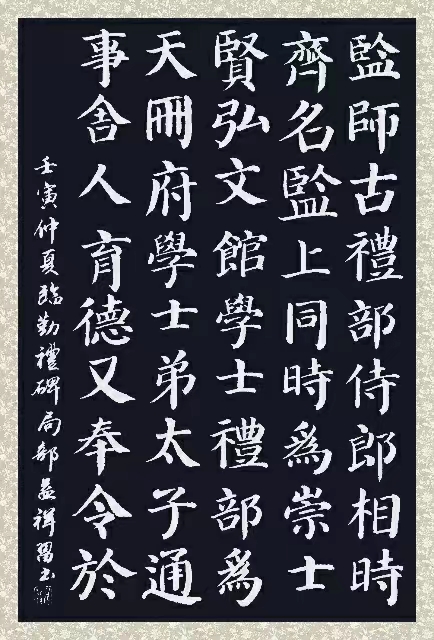 監師古禮部侍郎相時
齊名監上同時爲崇士
賢弘文館學士禮部爲
天冊府學士弟太子通
事舍人育德又奉令於
壬寅仲夏臨勤禮碑局部益祥習书